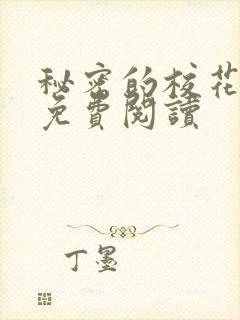 秘密的校花
免費閱讀
丁墨